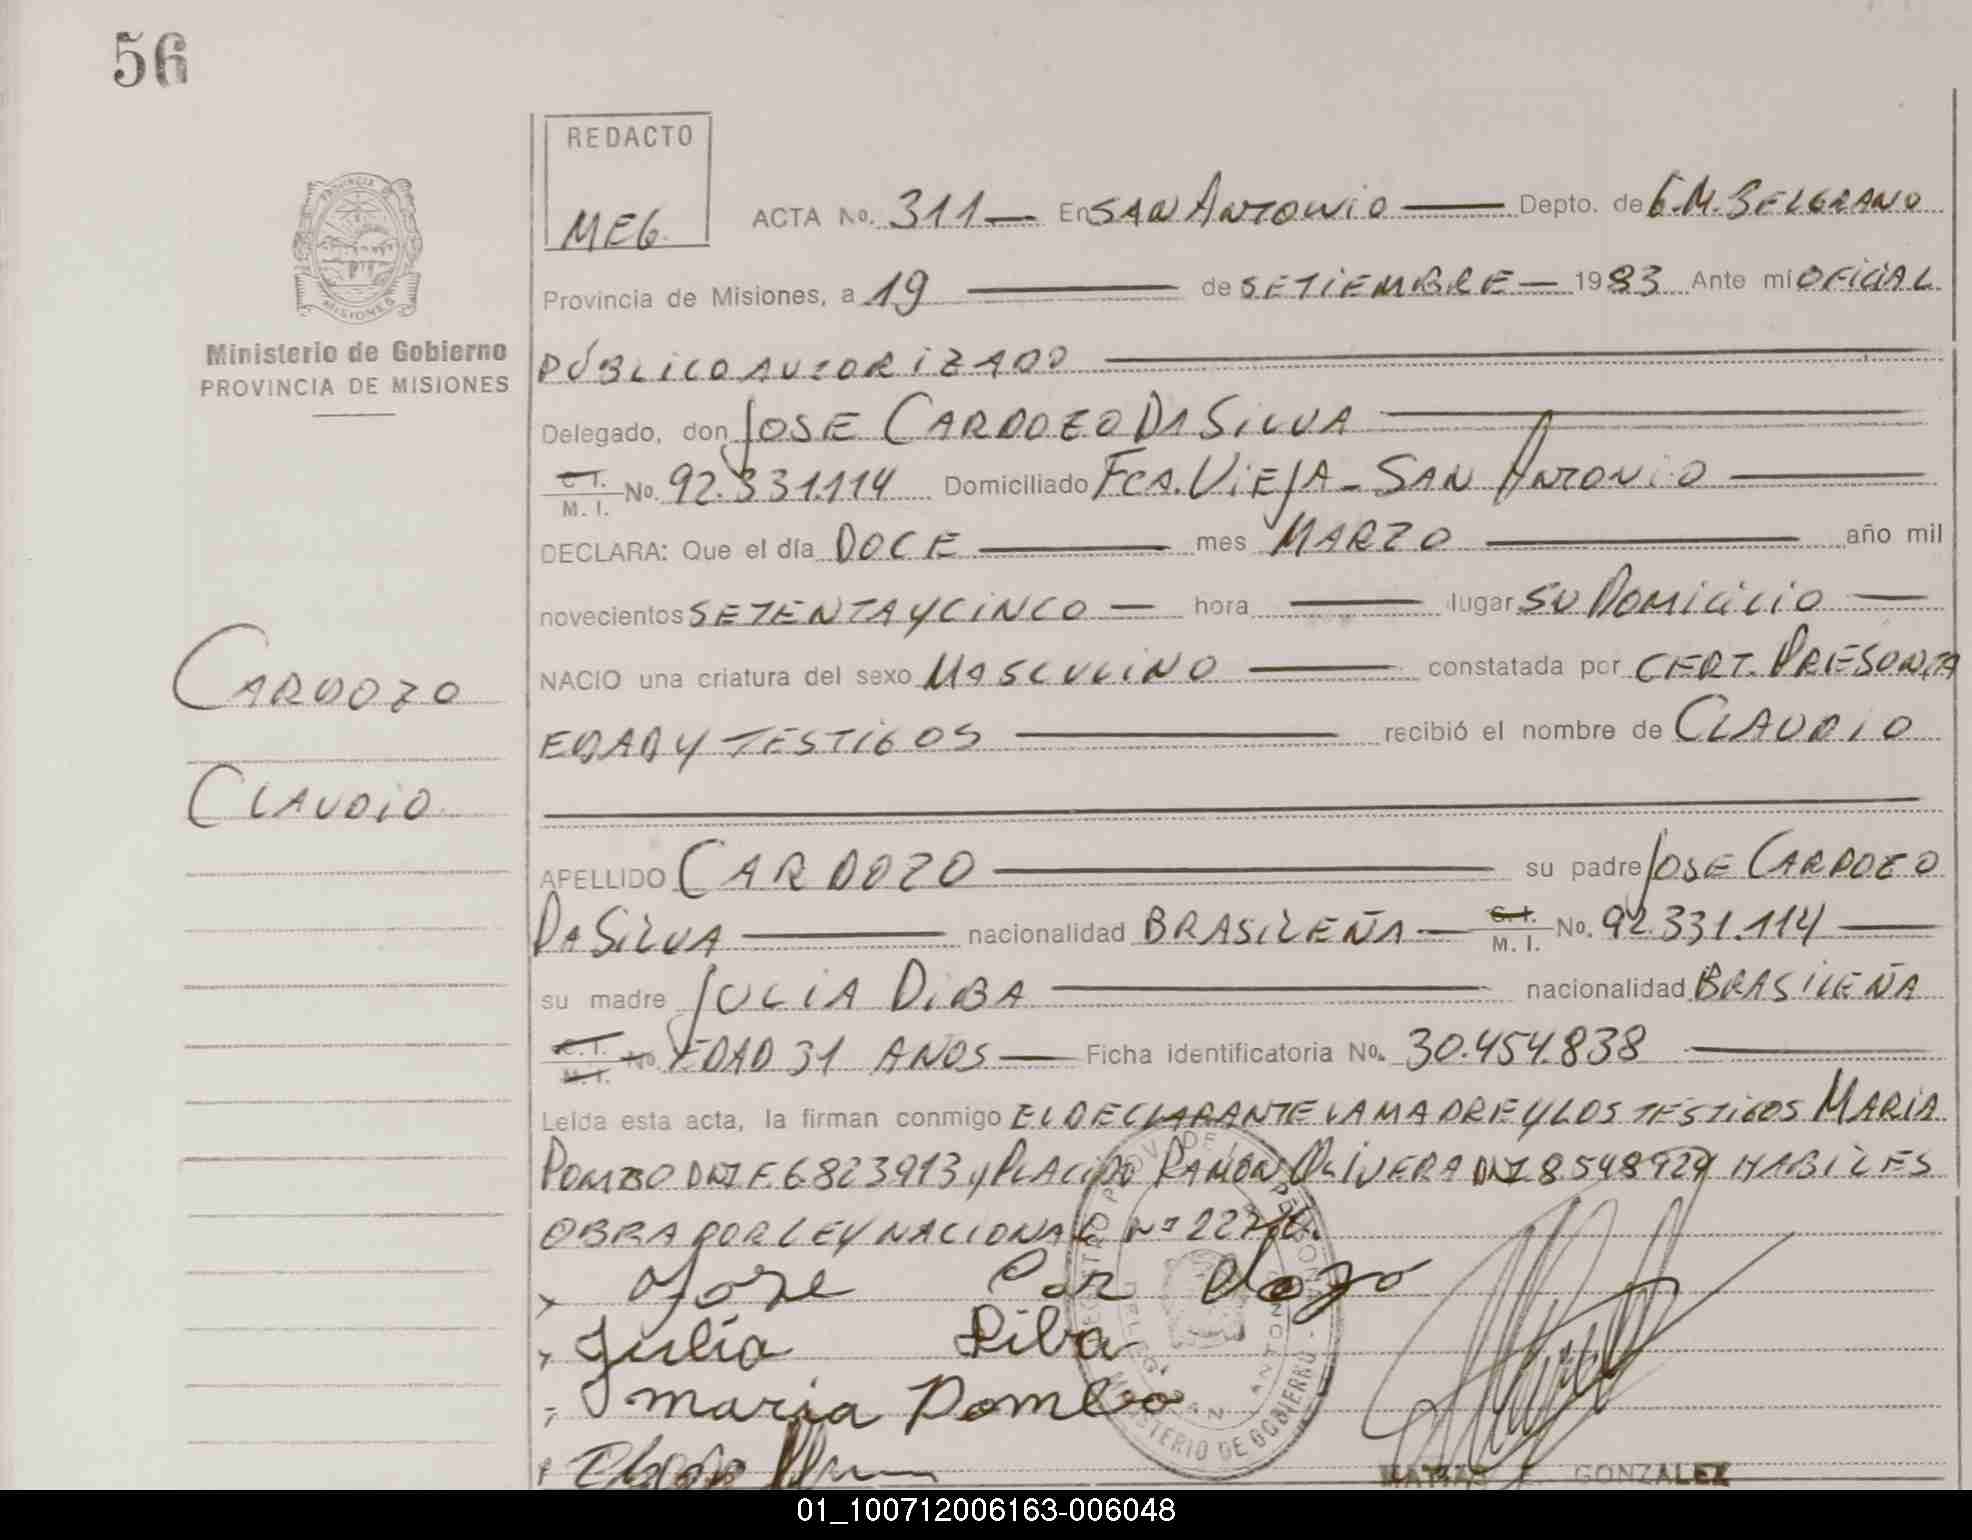 56
REDACTO
MEG.
ACTA No. 311 — En SAN ANTONIO — Depto. de G.M. BELGRANO
Provincia de Misiones, a 19 — de SETIEMBRE — 1983 Ante mi OFICIAL
PÚBLICO AUTORIZADO
Delegado, don JOSE CARDOZO DA SILVA
C.I. M. I. No. 92.331.114 Domiciliado FCA. VIEJA - SAN ANTONIO —
DECLARA: Que el día DOCE — mes MARZO — año mil
novecientos SETENTA Y CINCO — hora — lugar SU DOMICILIO —
NACIO una criatura del sexo MASCULINO — constatada por CERT. PRESUNTA
EDAD Y TESTIGOS — recibió el nombre de CLAUDIO
APELLIDO CARDOZO — su padre JOSE CARDOZO
DA SILVA — nacionalidad BRASILEÑA — C.I. M. I. No. 92.331.114 —
su madre JULIA DIBA — nacionalidad BRASILEÑA
C.I. M.I. No. EDAD 31 AÑOS — Ficha identificatoria No. 30.454.838 —
Leída esta acta, la firman conmigo EL DECLARANTE LA MADRE Y LOS TESTIGOS MARIA
POMBO DNI F. 6823913 y PLACIDO RAMON OLIVERA DNI 8548929 HABILES
OBRA POR LEY NACIONAL Nº
Jose Cardozo
Julia Diba
maria Pombo
MATIAS E. GONZALEZ
PROVINCIA
MISIONES
Ministerio de Gobierno
PROVINCIA DE MISIONES
CARDOZO
CLAUDIO
MINISTERIO DE GOBIERNO
01_100712006163-006048